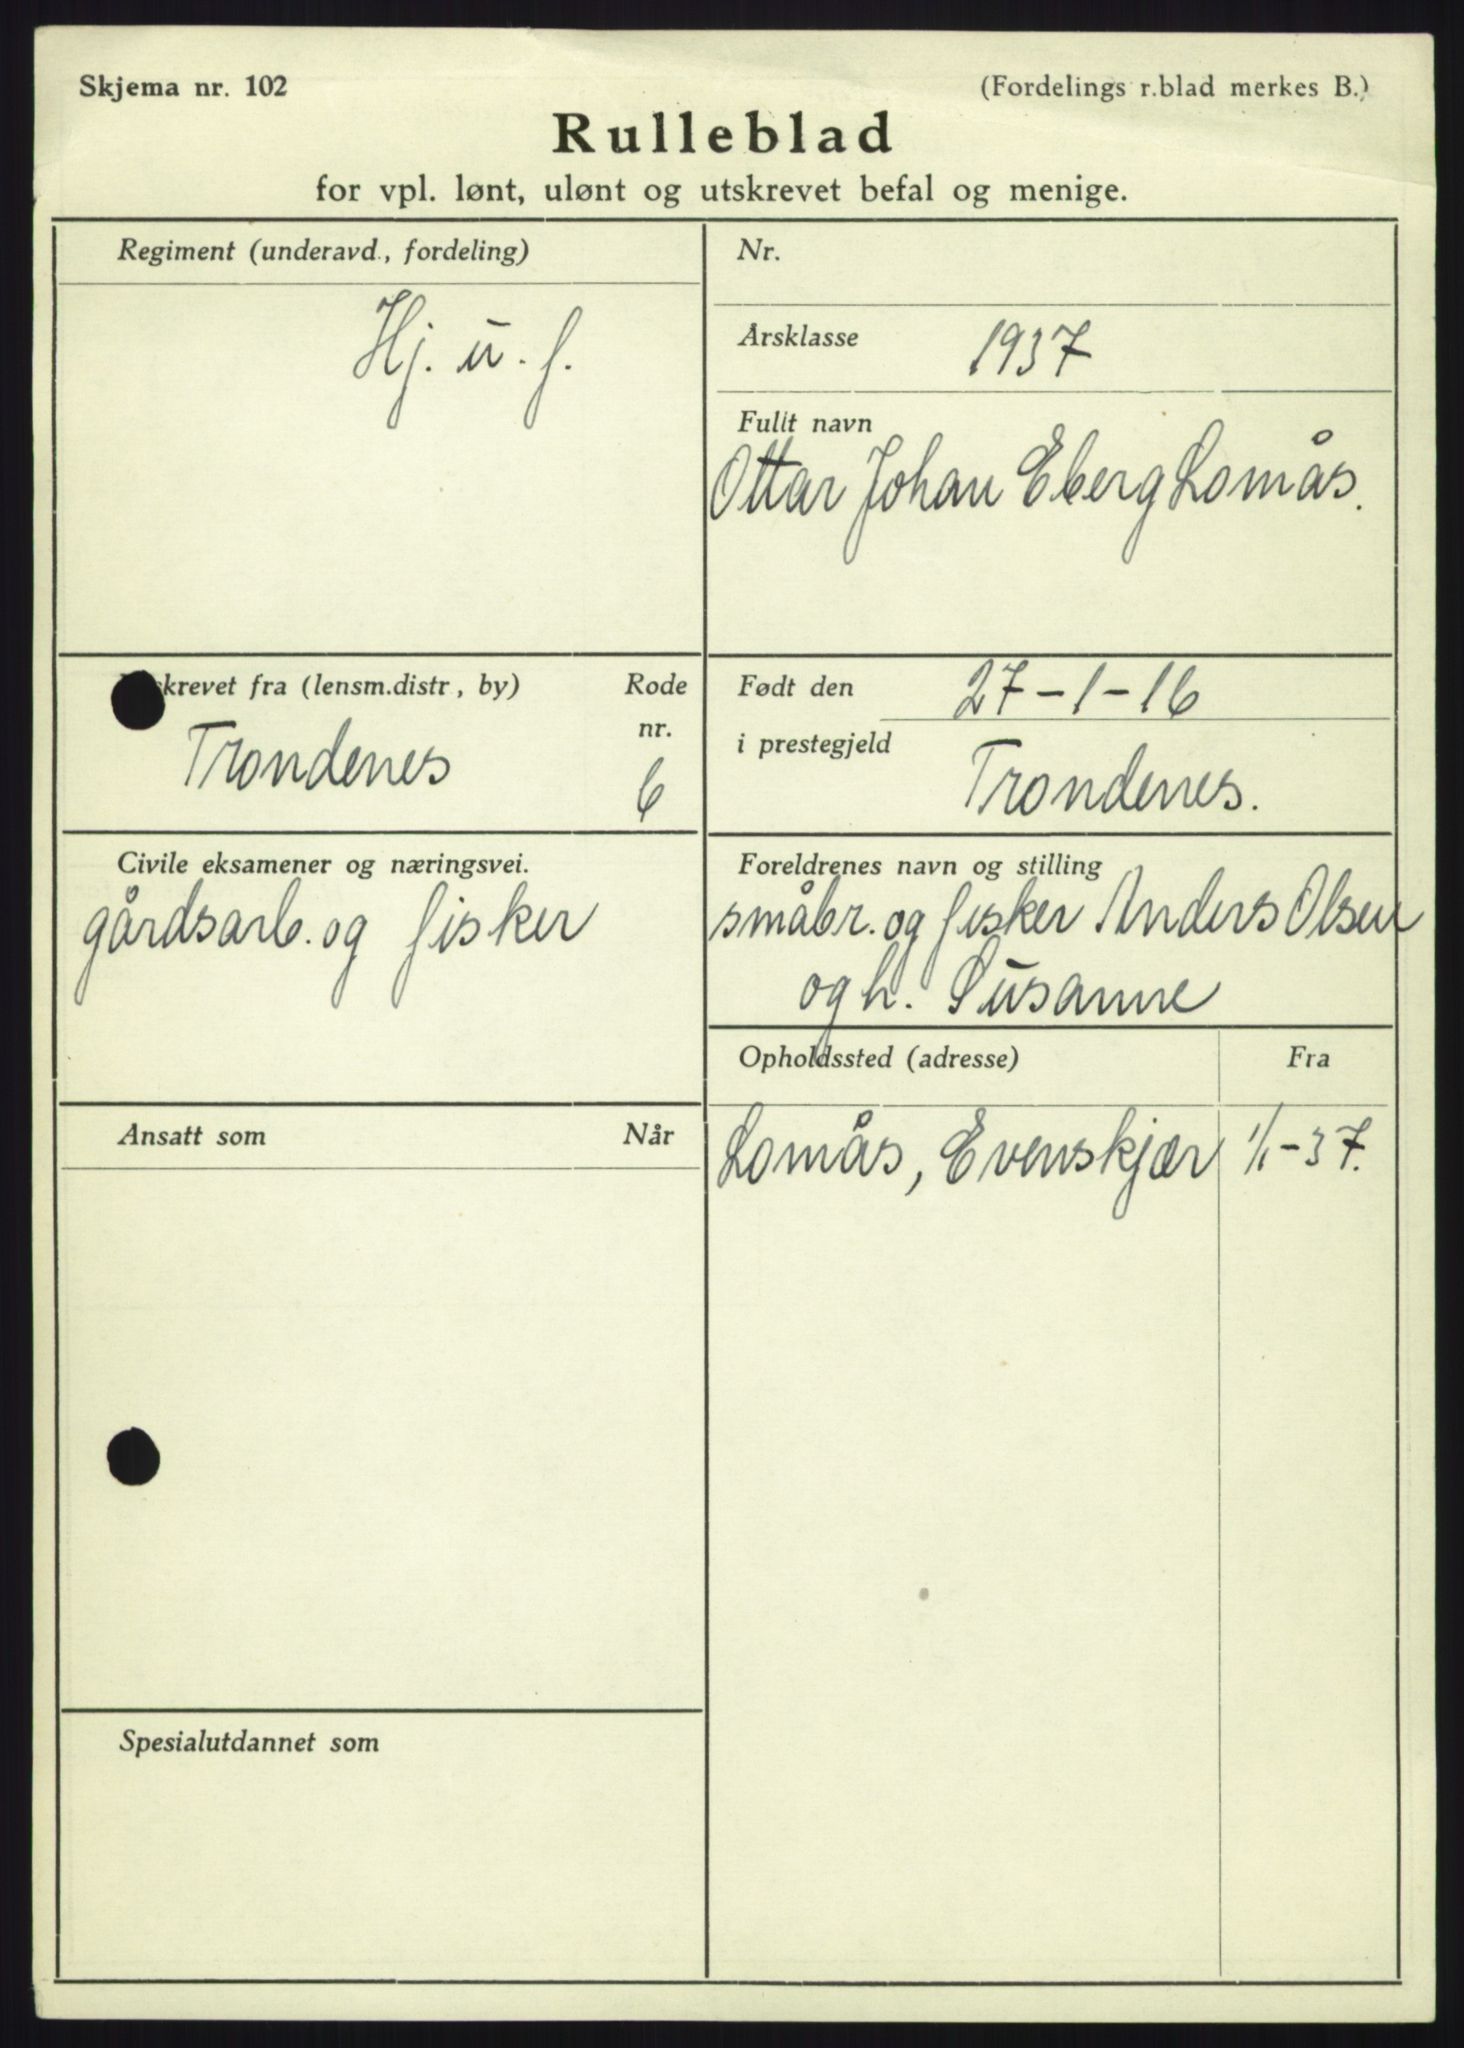 Skjema nr. 102
(Fordelings r.blad merkes B.)
Rulleblad
for vpl. lønt, ulønt og utskrevet befal og menige.
Regiment (underavd., fordeling)
Hj. u. f.
Nr.
Årsklasse 1937
Fullt navn
Ottar Johan Eberg Lomås.
skrevet fra (lensm.distr., by)
Rode
nr.
Trondenes
6
Født den 27-1-16
i prestegjeld
Trondenes.
Civile eksamener og næringsvei.
gårdsarb. og fisker
Foreldrenes navn og stilling
småbr. og fisker Anders Olsen
og h. Susanne
Opholdssted (adresse)
Fra
Lomås, Evenskjær 1/1-37.
Ansatt som
Når
Spesialutdannet som